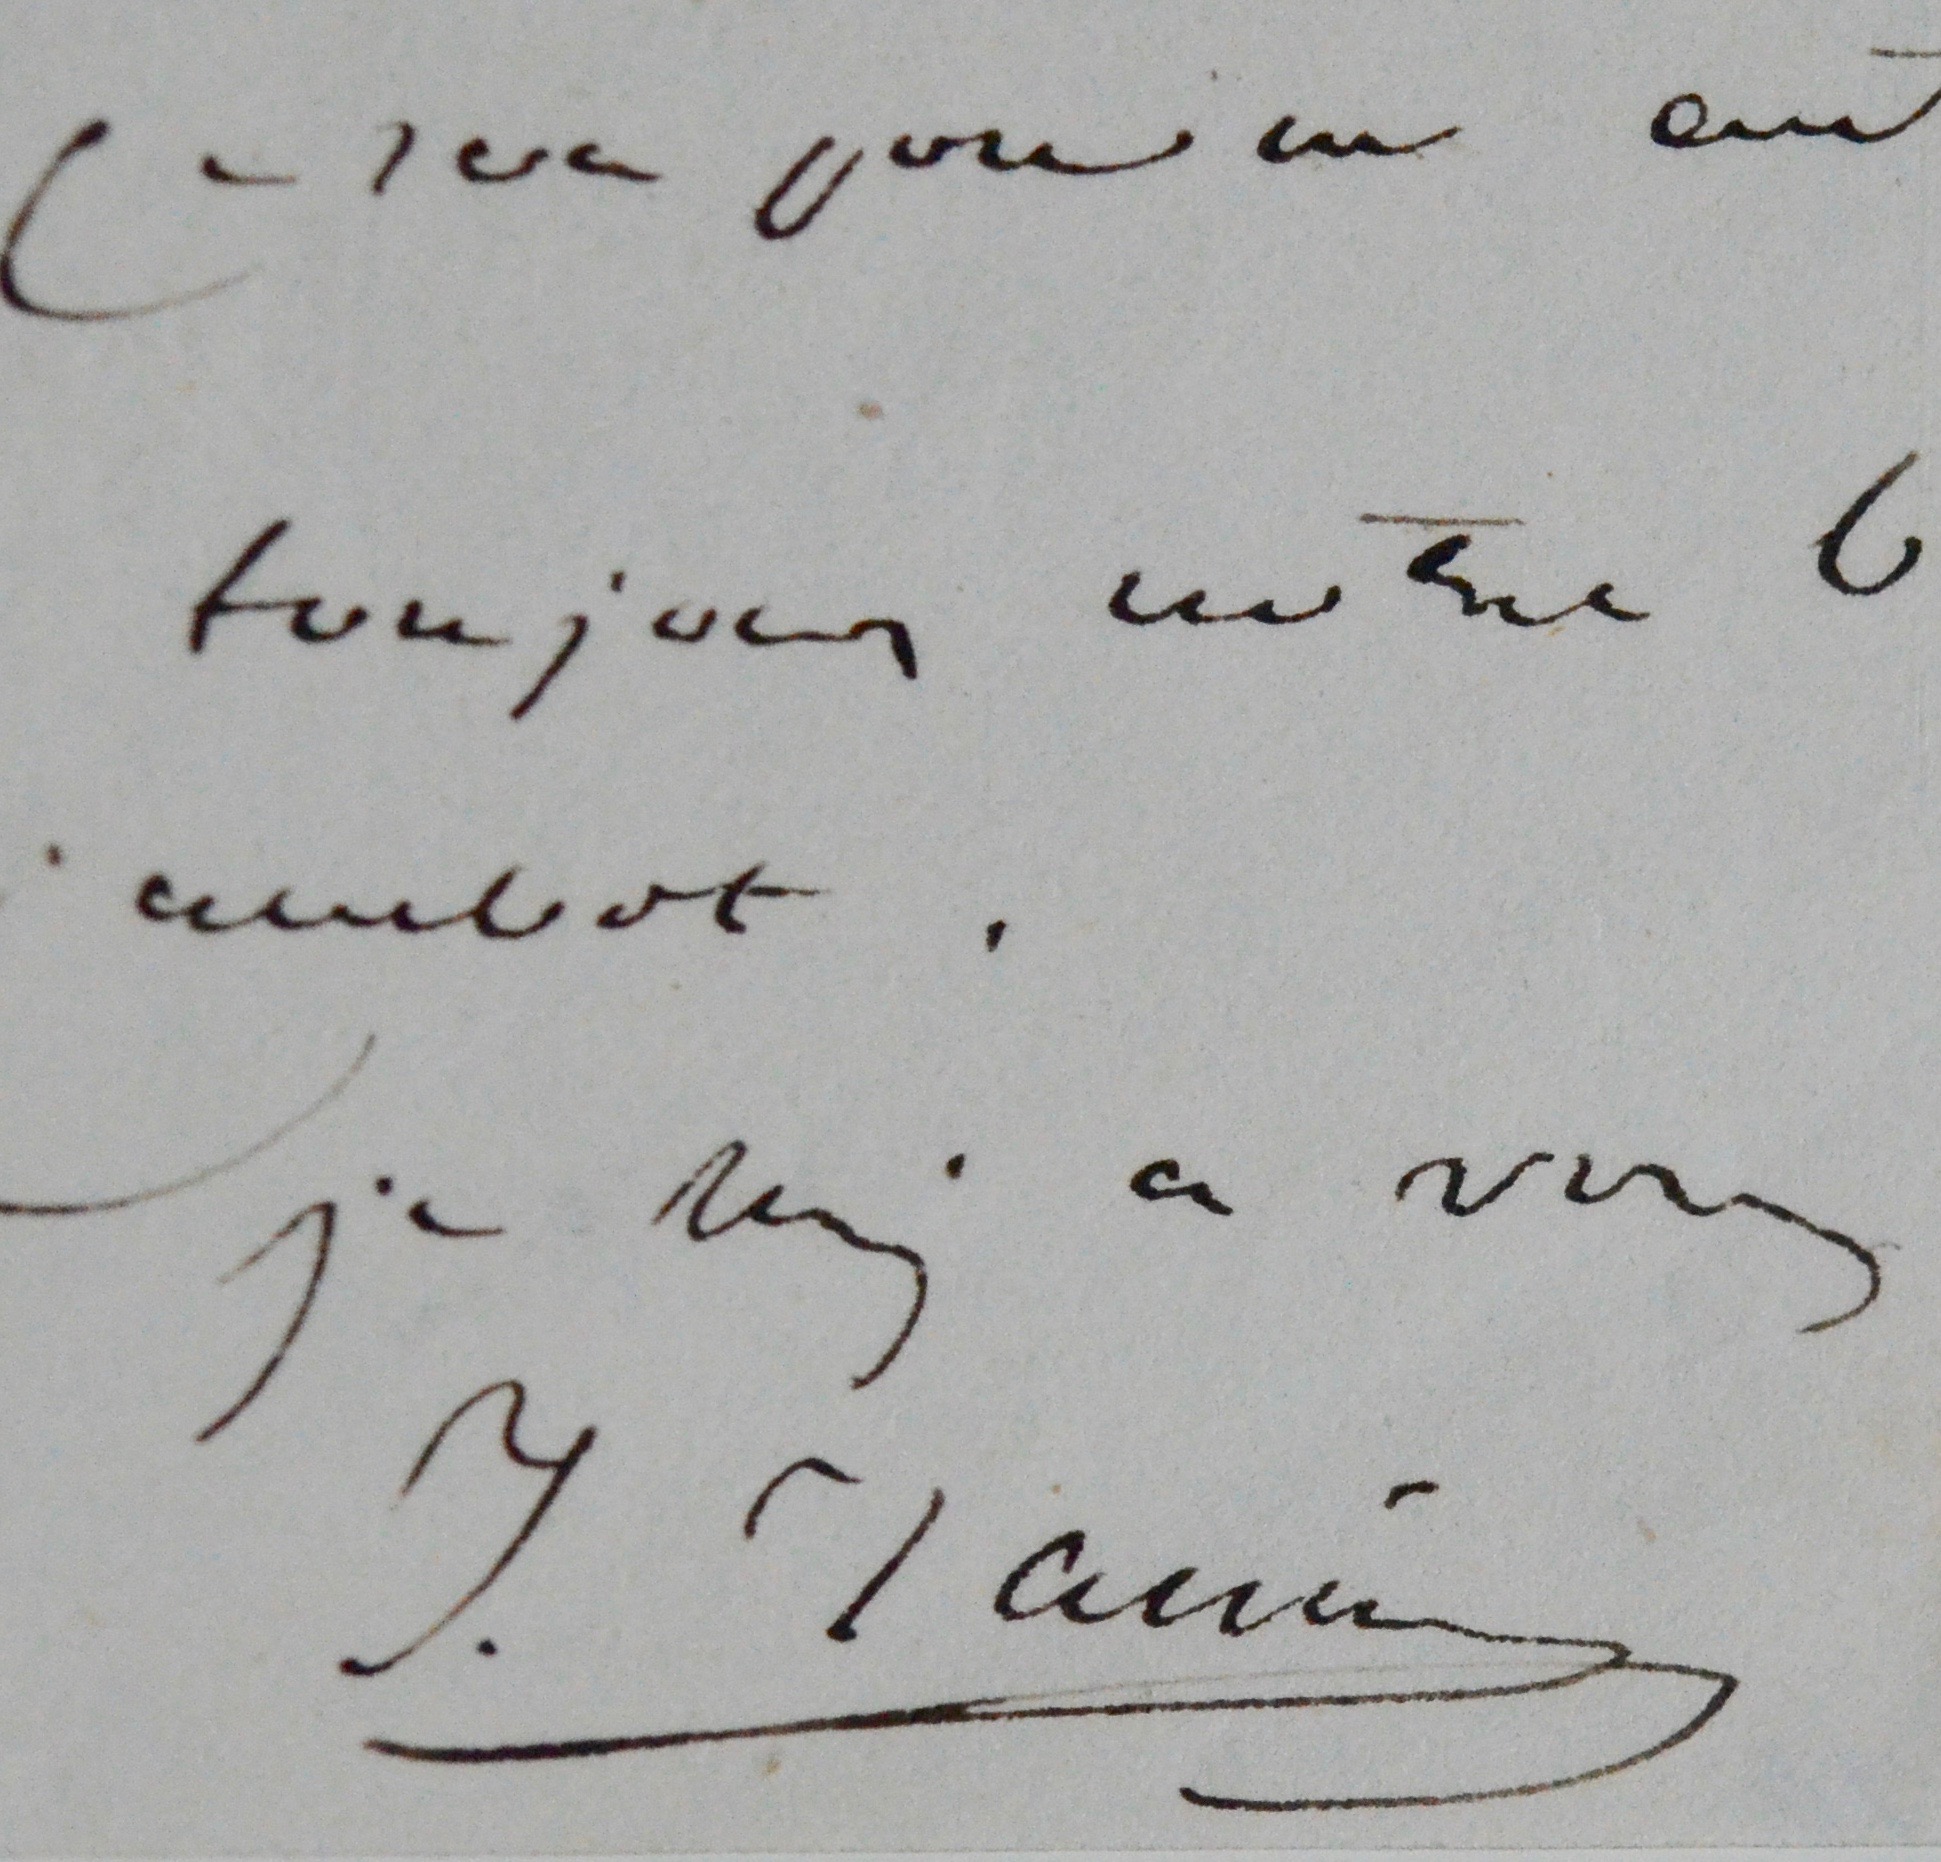 Ce sera pour un aut
toujours notre b
jambot.
je suis a vous
J. Janin